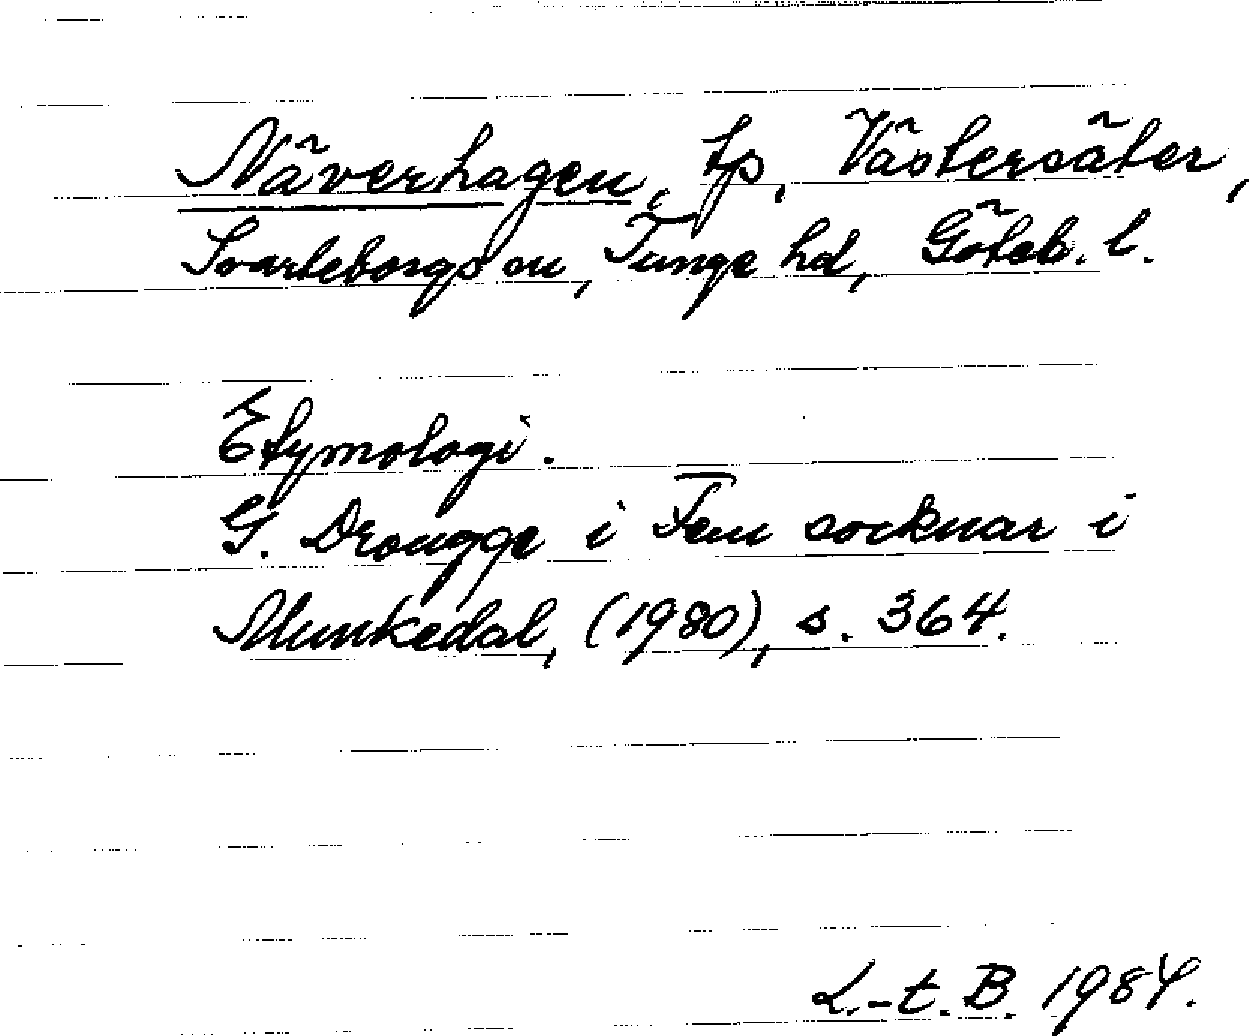 Näverhagen, tp, Västersäter,
Svarteborgs sn, Tunge hd, Göteb. l.
Etymologi.
G. Drougge i Fem socknar i
Munkedal, (1980), s. 364.
L.-t. B. 1984.